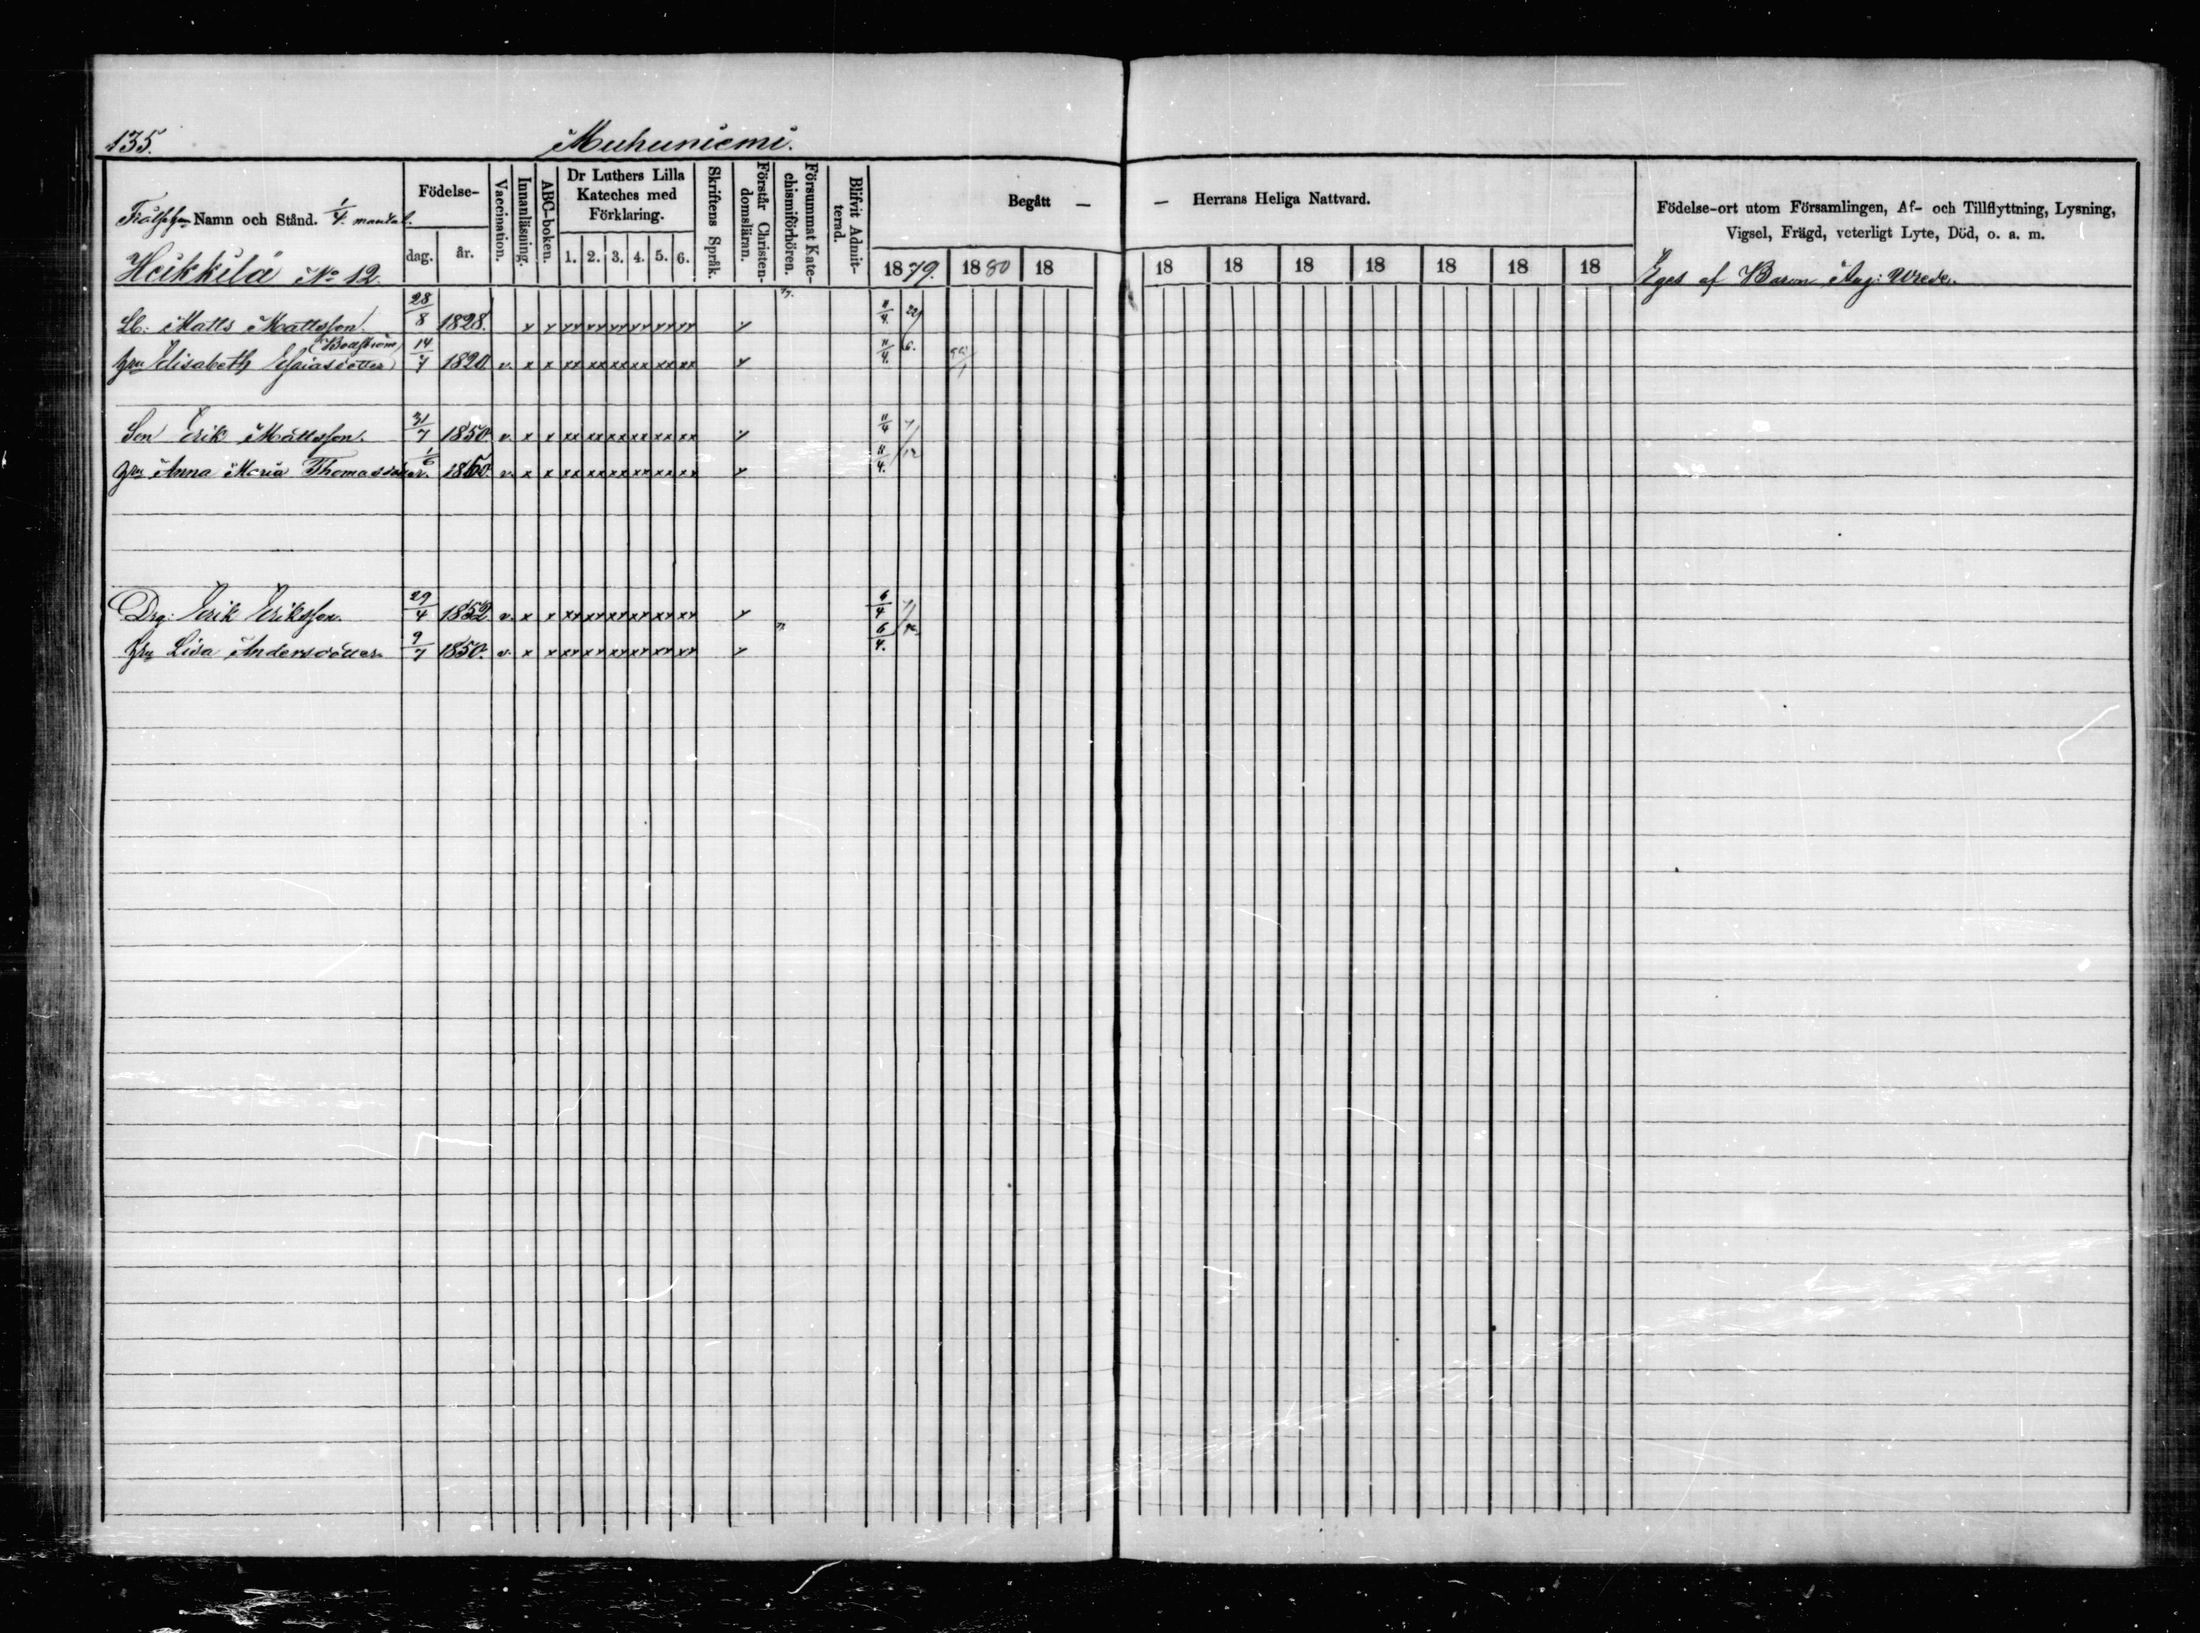 135.
Muhuniemi.
Frälse Namn och Stånd. 1/4 mantal.
Födelse-
dag.
år.
Vaccination.
Innanläsning.
ABC-boken.
Dr Luthers Lilla
Kateches med
Förklaring.
1. 2. 3. 4. 5. 6.
Skriftens Språk.
Förstår Christen-
domsläran.
Försummat Kate-
chismiförhören.
Blifvit Admit-
terad.
Begått —
— Herrans Heliga Nattvard.
1879. 1880 18 18 18 18 18 18 18 18
Födelse-ort utom Församlingen, Af- och Tillflyttning, Lysning,
Vigsel, Frägd, veterligt Lyte, Död, o. a. m.
Heikkilä No 12.
Eges af Baron Aug: Wrede.
Lb: Matts Mattsson. 28/8 1828. x x xx xx xx xx xx xx x 11/4 22/
(Boström)
hru Elisabeth Esaiasdotter 14/7 1820. v. x x xx xx xx xx xx xx x 11/4. 6.
Son Erik Mattsson. 31/7 1850. v. x x xx xx xx xx xx xx x 11/4 7/
hru Anna Maria Thomasdotter. 1/6 1860. v. x x xx xx xx xx xx xx x 11/4. /12
Drg: Erik Eriksson. 29/4 1852 v. x x xx xx xx xx xx xx x 6/4
hru Lisa Andersdotter 9/7 1850. v. x x xx xx xx xx xx xx x 6/4.